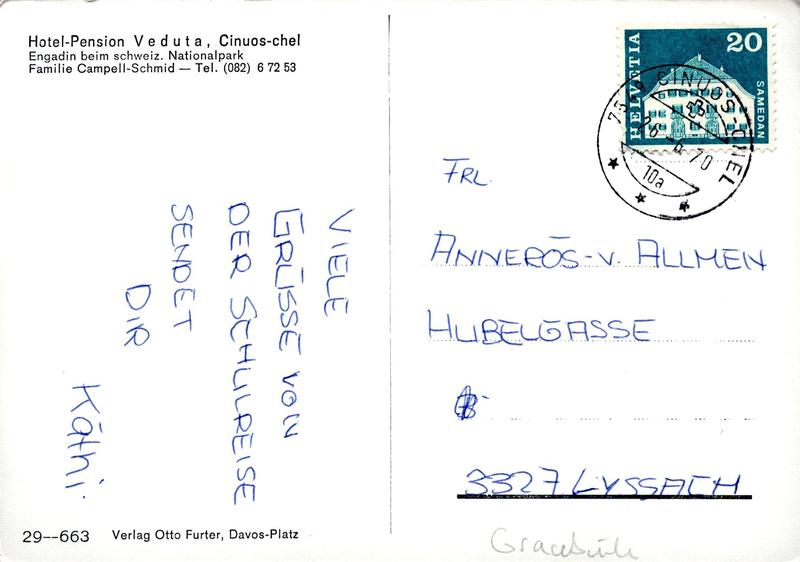 Hotel-Pension Veduta, Cinuos-chel
Engadin beim schweiz. Nationalpark
Familie Campell-Schmid — Tel. (082) 6 72 53
HELVETIA
20
SAMEDAN
CINUOS-CHEL
26.-6.70
10a
VIELE
GRÜSSE VON
DER SCHULREISE
SENDET
DIR
Käthi.
FRL.
ANNERÖS-V. ALLMEN
HUBELGASSE
3327 LYSSACH
29--663
Verlag Otto Furter, Davos-Platz